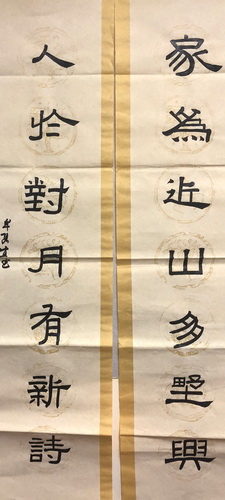 家為近山多野興
人於對月有新詩